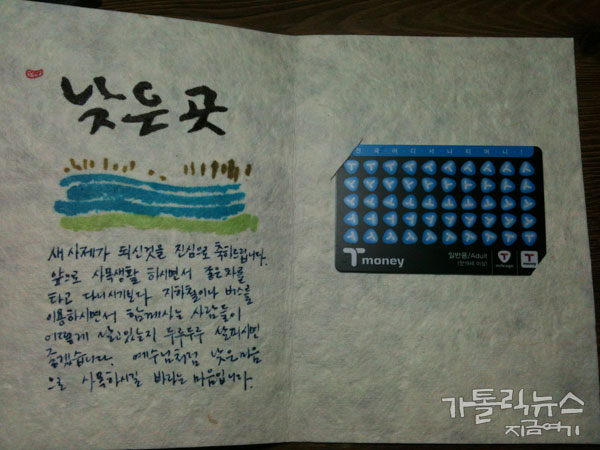 낮은 곳
새 사제가 되신것을 진심으로 축하드립니다.
앞으로 사목생활 하시면서 좋은차를
타고 다니시기보다 지하철이나 버스를
이용하시면서 함께사는 사람들이
어떻게 살고있는지 두루두루 살피시면
좋겠습니다. 예수님처럼 낮은마음
으로 사목하시길 바라는 마음입니다.
전국어디서나티머니!
T money
일반용/Adult
(만19세 이상)
가톨릭뉴스
지금여기